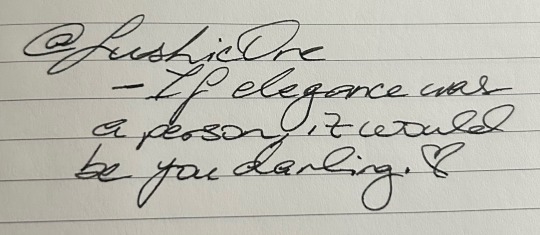 @LushicOne
- If elegance was
a person, it would
be you darling. ♡